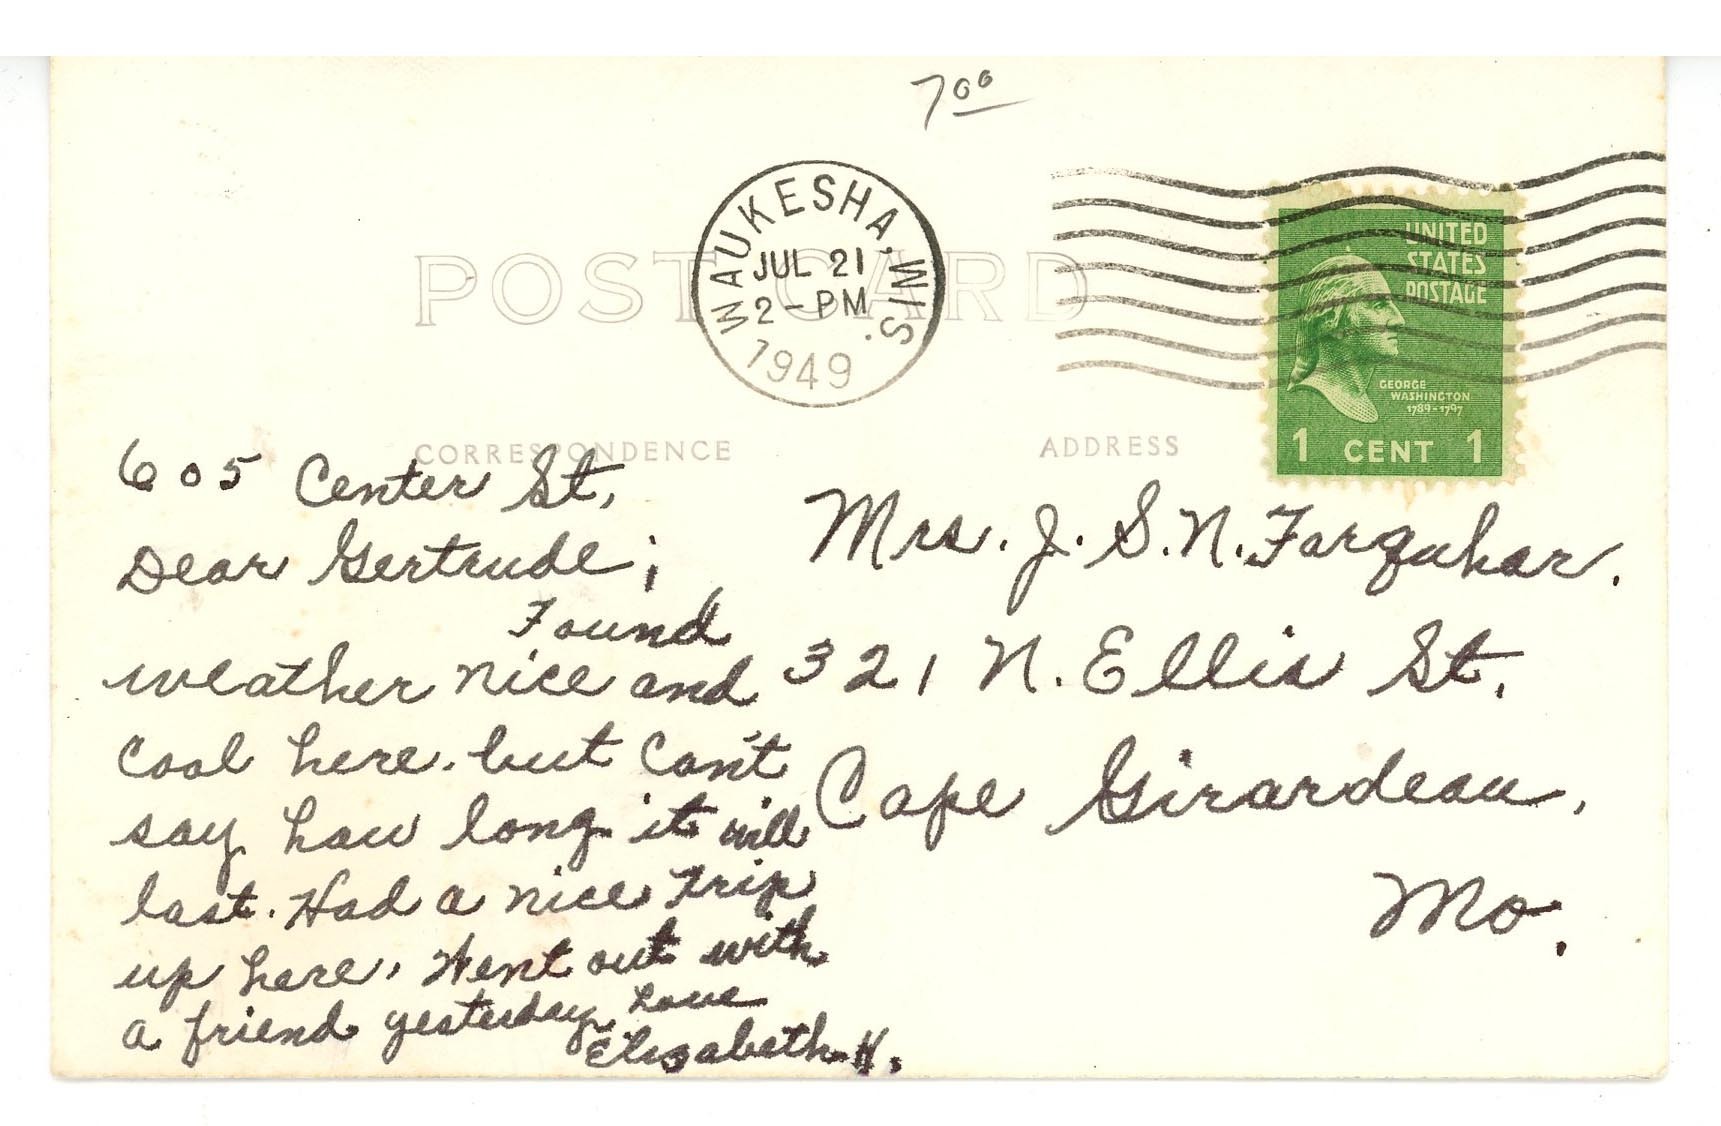 7 00
WAUKESHA, WIS.
JUL 21
2 - PM
1949
POST CARD
UNITED
STATES
POSTAGE
GEORGE
WASHINGTON
1789-1797
1 CENT 1
CORRESPONDENCE
ADDRESS
605 Center St,
Dear Gertrude;
Found
weather nice and
cool here. but can't
say how long it will
last. Had a nice trip
up here, Went out with
a friend yesterday. Love
Elizabeth H.
Mrs. J. S. N. Farquhar.
321 N. Ellis St.
Cape Girardeau,
Mo.